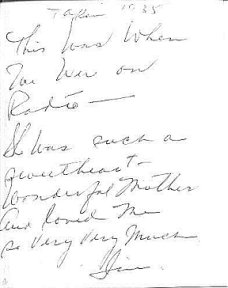 Taken 1935
This Was When
We Were on
Radio —
She Was such a
sweetheart -
Wonderful Mother
And loved Me
so Very Very Much
Jim